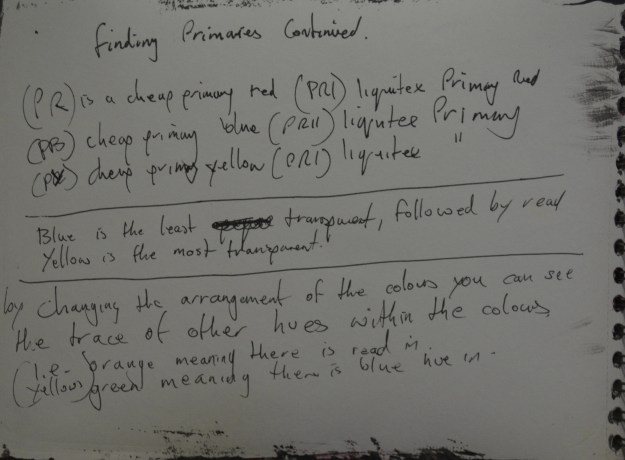 finding Primares Continued.
(PR) is a cheap primary red (PR1) liquitex Primay Red
(PB) cheap primay blue (PR11) liqutex Primary
(PY) cheap primy yellow (PR1) liquitex "
Blue is the least transparent, followed by read
Yellow is the most transparent.
by changing the arrangement of the colous you can see
the trace of other hues within the colous
(i.e. orange meaning there is read in
yellow) green meaning there is blue hue in.